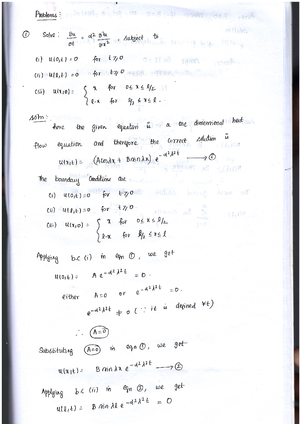 Problems:
① Solve: ∂u/∂t = α² ∂²u/∂x², subject to
(i) u(0,t) = 0 for t ≥ 0
(ii) u(l,t) = 0 for t ≥ 0
(iii) u(x,0) = { x for 0 ≤ x ≤ l/2
l-x for l/2 ≤ x ≤ l.
soln:
here the given equation is a one dimensional heat
flow equation and therefore the correct solution is
u(x,t) = (A cos λx + B sin λx) e^{-α²λ²t} → ①
The boundary conditions are
(i) u(0,t) = 0 for t ≥ 0
(ii) u(l,t) = 0 for t ≥ 0
(iii) u(x,0) = { x for 0 ≤ x ≤ l/2
l-x for l/2 ≤ x ≤ l
Applying b.c (i) in eqn ①, we get
u(0,t) = A e^{-α²λ²t} = 0.
either A=0 or e^{-α²λ²t} = 0.
e^{-α²λ²t} ≠ 0 (∵ it is defined ∀t)
∴ A=0
Substituting A=0 in eqn ①, we get
u(x,t) = B sin λx e^{-α²λ²t} → ②
Applying b.c (ii) in eqn ②, we get
u(l,t) = B sin λl e^{-α²λ²t} = 0